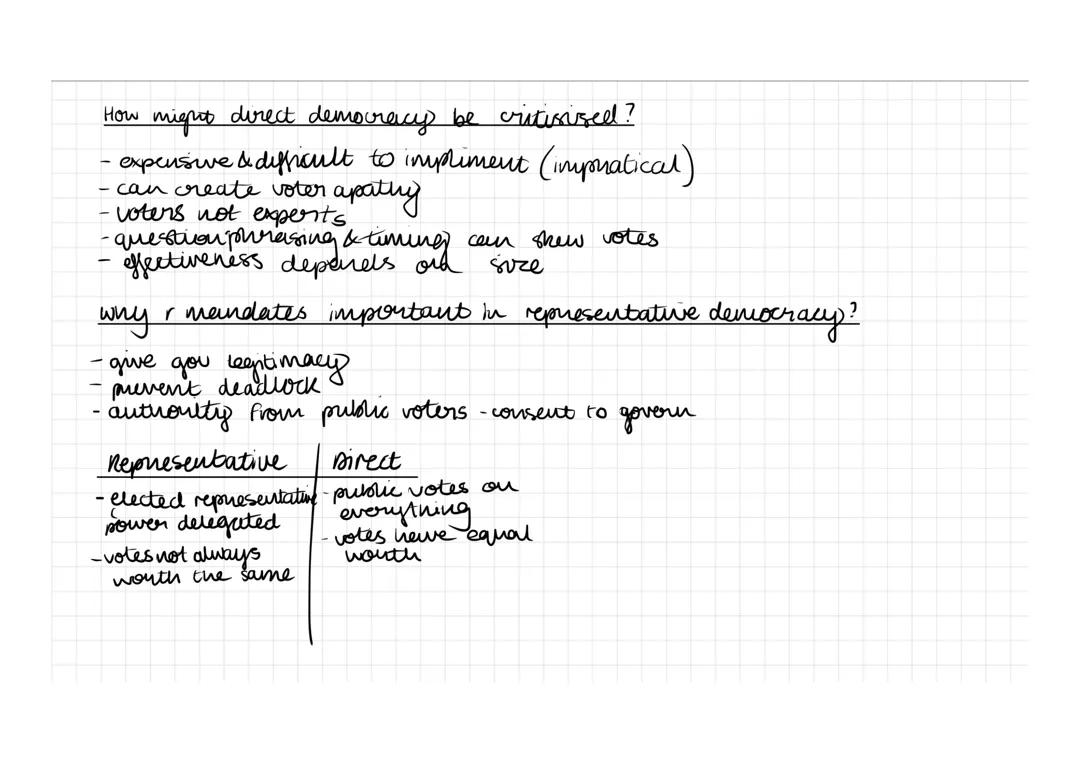 How might direct democracy be critisised?
- expensive & difficult to impliment (impratical)
- can create voter apathy
- voters not experts
- question phrasing & timing can skew votes
- effectiveness depends on size
why r mandates important in representative democracy?
- give gov legitimacy
- prevent deadlock
- authority from public voters - consent to govern
Representative
Direct
- elected representative
power delegated
- votes not always
worth the same
- public votes on
everything
- votes have equal
worth